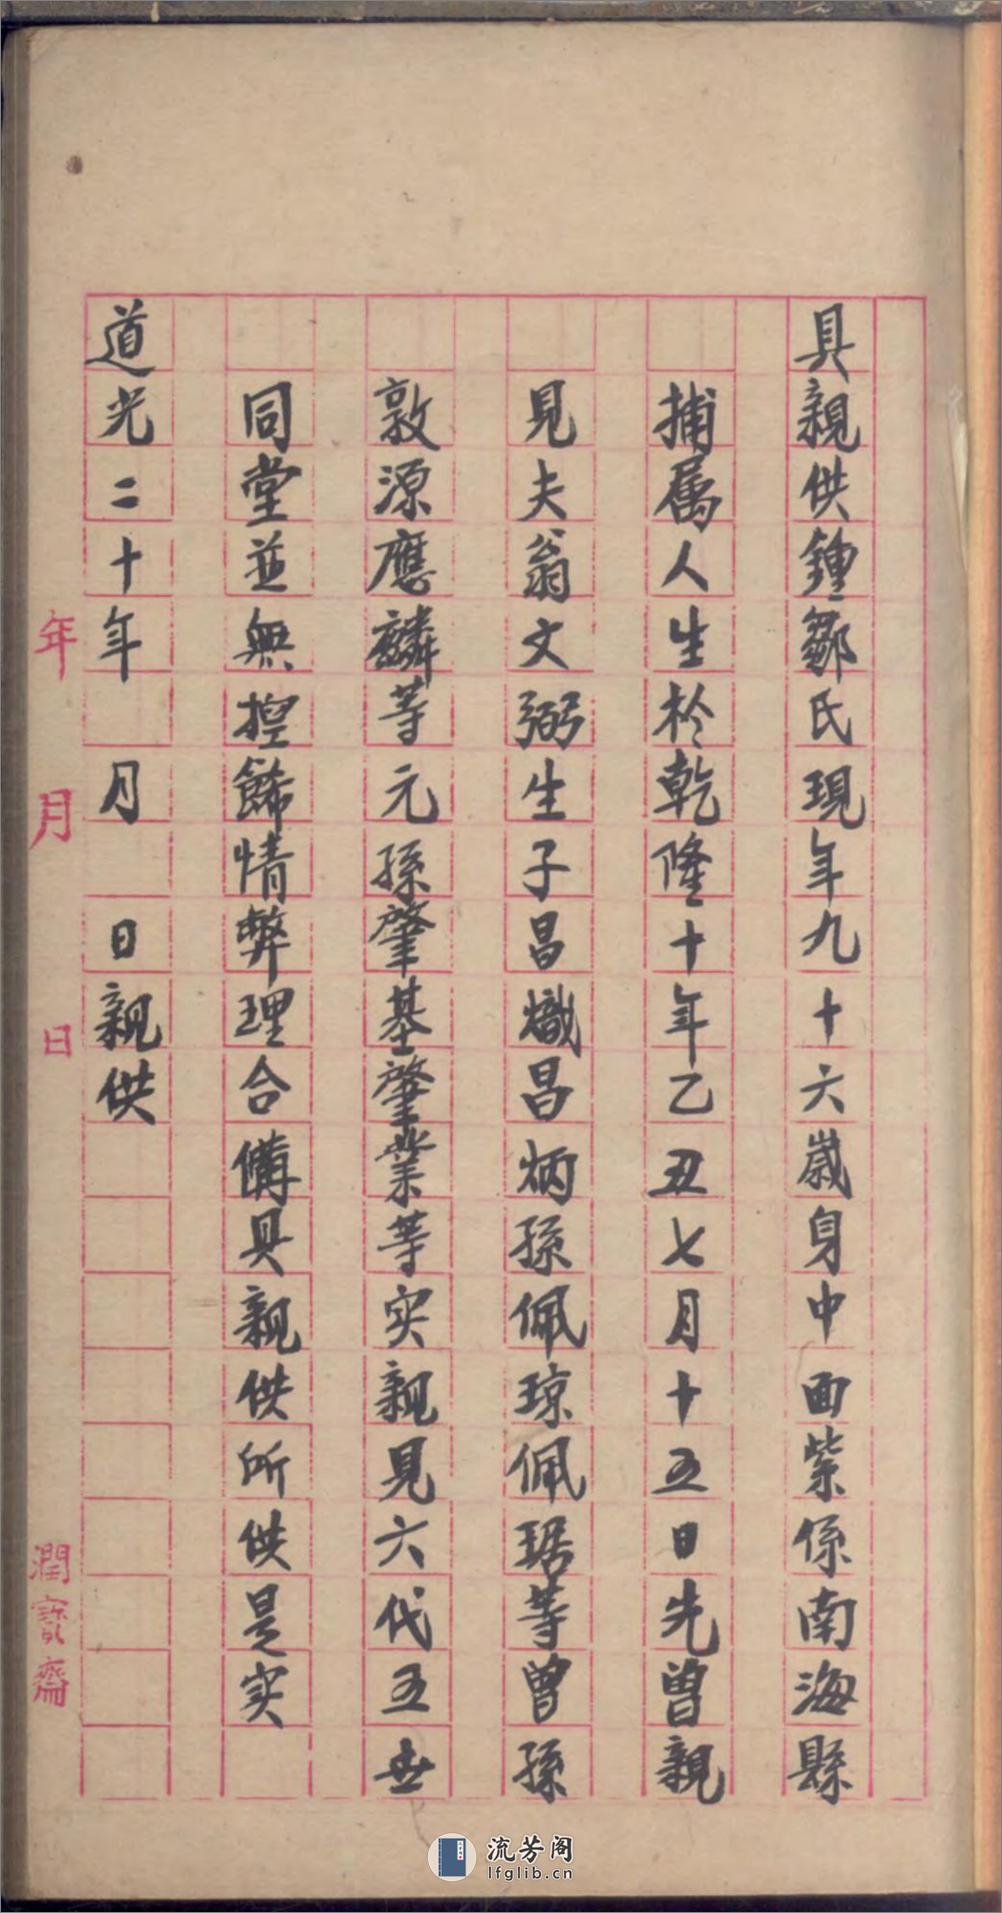 具親供鍾鄒氏現年九十六歲身中面紫係南海縣
捕属人生於乾隆十年乙丑七月十五日先曾親
見夫翁文弼生子昌熾昌炳孫佩琼佩琚等曾孫
敦源應麟等元孫肇基肇業等实親見六代五世
同堂並無捏餙情弊理合僃具親供所供是实
道光二十年 月 日親供
年 月 日
潤寳齋
流芳阁
lfglib.cn